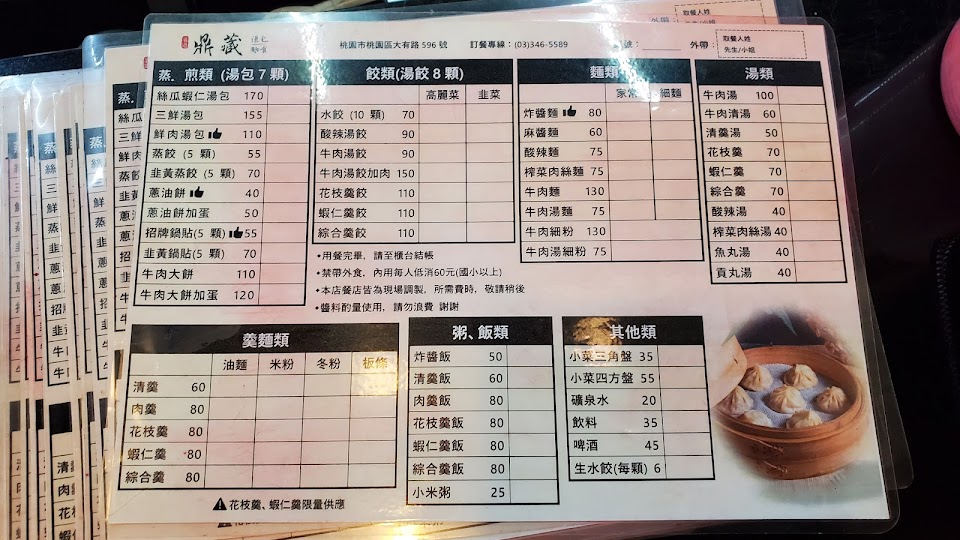 鼎藏
桃園市桃園區大有路 596 號 訂餐專線：(03)346-5589 外帶：
取餐人姓
先生/小姐
蒸. 煎類 (湯包 7 顆)
絲瓜蝦仁湯包 170
三鮮湯包 155
鮮肉湯包 110
蒸餃 (5 顆) 55
韭黃蒸餃 (5 顆) 70
蔥油餅 40
蔥油餅加蛋 50
招牌鍋貼(5 顆) 55
韭黃鍋貼(5 顆) 70
牛肉大餅 110
牛肉大餅加蛋 120
餃類(湯餃 8 顆)
高麗菜 韭菜
水餃 (10 顆) 70
酸辣湯餃 90
牛肉湯餃 90
牛肉湯餃加肉 150
花枝羹餃 110
蝦仁羹餃 110
綜合羹餃 110
•用餐完畢，請至櫃台結帳
•禁帶外食，內用每人低消60元(國小以上)
•本店餐店皆為現場調製，所需費時，敬請稍後
•醬料酌量使用，請勿浪費 謝謝
麵類
家常 細麵
炸醬麵 80
麻醬麵 60
酸辣麵 75
榨菜肉絲麵 75
牛肉麵 130
牛肉湯麵 75
牛肉細粉 130
牛肉湯細粉 75
湯類
牛肉湯 100
牛肉清湯 60
清羹湯 50
花枝羹 70
蝦仁羹 70
綜合羹 70
酸辣湯 40
榨菜肉絲湯 40
魚丸湯 40
貢丸湯 40
羹麵類
油麵 米粉 冬粉 板條
清羹 60
肉羹 80
花枝羹 80
蝦仁羹 80
綜合羹 80
花枝羹、蝦仁羹限量供應
粥、飯類
炸醬飯 50
清羹飯 60
肉羹飯 80
花枝羹飯 80
蝦仁羹飯 80
綜合羹飯 80
小米粥 25
其他類
小菜三角盤 35
小菜四方盤 55
礦泉水 20
飲料 35
啤酒 45
生水餃(每顆) 6